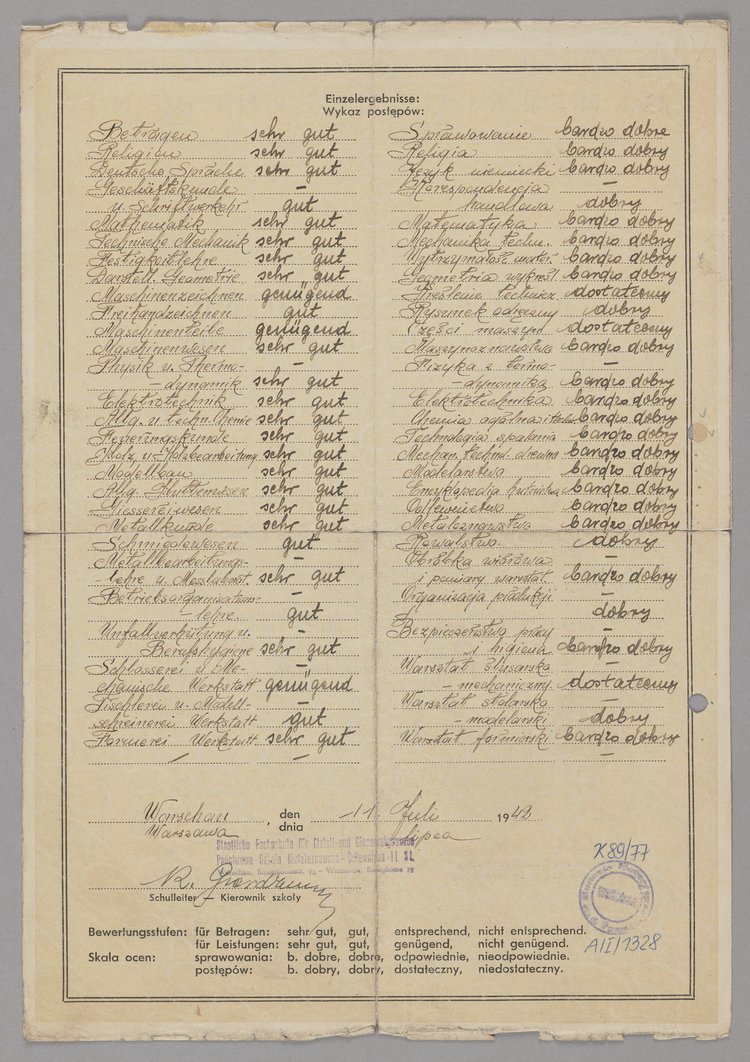 Einzelergebnisse:
Wykaz postępów:
Betragen sehr gut
Religion sehr gut
Deutsche Sprache sehr gut
Geschäftskunde –
u. Schriftverkehr gut
Mathematik sehr gut
Technische Mechanik sehr gut
Festigkeitlehre sehr gut
Darstell. Geometrie sehr gut
Maschinenzeichnen genügend
Freihandzeichnen gut
Maschinenteile genügend
Maschinenwesen sehr gut
Physik u. Thermo- –
– dynamik sehr gut
Elektrotechnik sehr gut
Allg. u. techn. Chemie sehr gut
Feuerungskunde sehr gut
Holz u. Holzbearbeitung sehr gut
Modellbau sehr gut
Allg. Hüttenwesen sehr gut
Giesserei-wesen sehr gut
Metallkunde sehr gut
Schmiedewesen gut
Metallbearbeitungs- –
– lehre u. Messlaborat. sehr gut
Betriebsorganisations- –
– lehre. gut
Unfallverhütung u. –
Berufshygiene sehr gut
Schlosserei u. Me- –
chanische Werkstatt genügend
Tischlerei u. Modell- –
schreinerei Werkstatt gut
Formerei Werkstatt sehr gut
Sprawowanie bardzo dobre
Religia bardzo dobry
Język niemiecki bardzo dobry
Korespondencja –
handlowa dobry
Matematyka bardzo dobry
Mechanika techn. bardzo dobry
Wytrzymałość mater. bardzo dobry
Geometria wykreśl. bardzo dobry
Kreślenie technicz. dostateczny
Rysunek odręczny dobry
Części maszyn dostateczny
Maszynoznawstwo bardzo dobry
Fizyka z termo- –
– dynamiką bardzo dobry
Elektrotechnika bardzo dobry
Chemia ogólna i techn. bardzo dobry
Technologia spalania bardzo dobry
Mechan. technol. drewna bardzo dobry
Modelarstwo bardzo dobry
Encyklopedia hutnictwa bardzo dobry
Odlewnictwo bardzo dobry
Metaloznawstwo bardzo dobry
Kowalstwo. dobry
Obróbka wiórowa –
i pomiary warsztat. bardzo dobry
Organizacja produkcji –
dobry
Bezpieczeństwo pracy –
i higiena bardzo dobry
Warsztat ślusarsko –
– mechaniczny dostateczny
Warsztat stolarsko –
– modelarski dobry
Warsztat formierski bardzo dobry
Warschau, den 11. Juli 1942
Warszawa dnia lipca
Staatliche Fachschule für Metall- und Giessereiwesen
Państwowa Szkoła Metaloznawczo-Odlewnicza II St.
Warschau, Konopkastr. 75 – Warszawa, Konopkowa 75
Schulleiter — Kierownik szkoły
X 89/77
AII/1328
Bewertungsstufen: für Betragen: sehr gut, gut, entsprechend, nicht entsprechend.
für Leistungen: sehr gut, gut, genügend, nicht genügend.
Skala ocen: sprawowania: b. dobre, dobre, odpowiednie, nieodpowiednie.
postępów: b. dobry, dobry, dostateczny, niedostateczny.